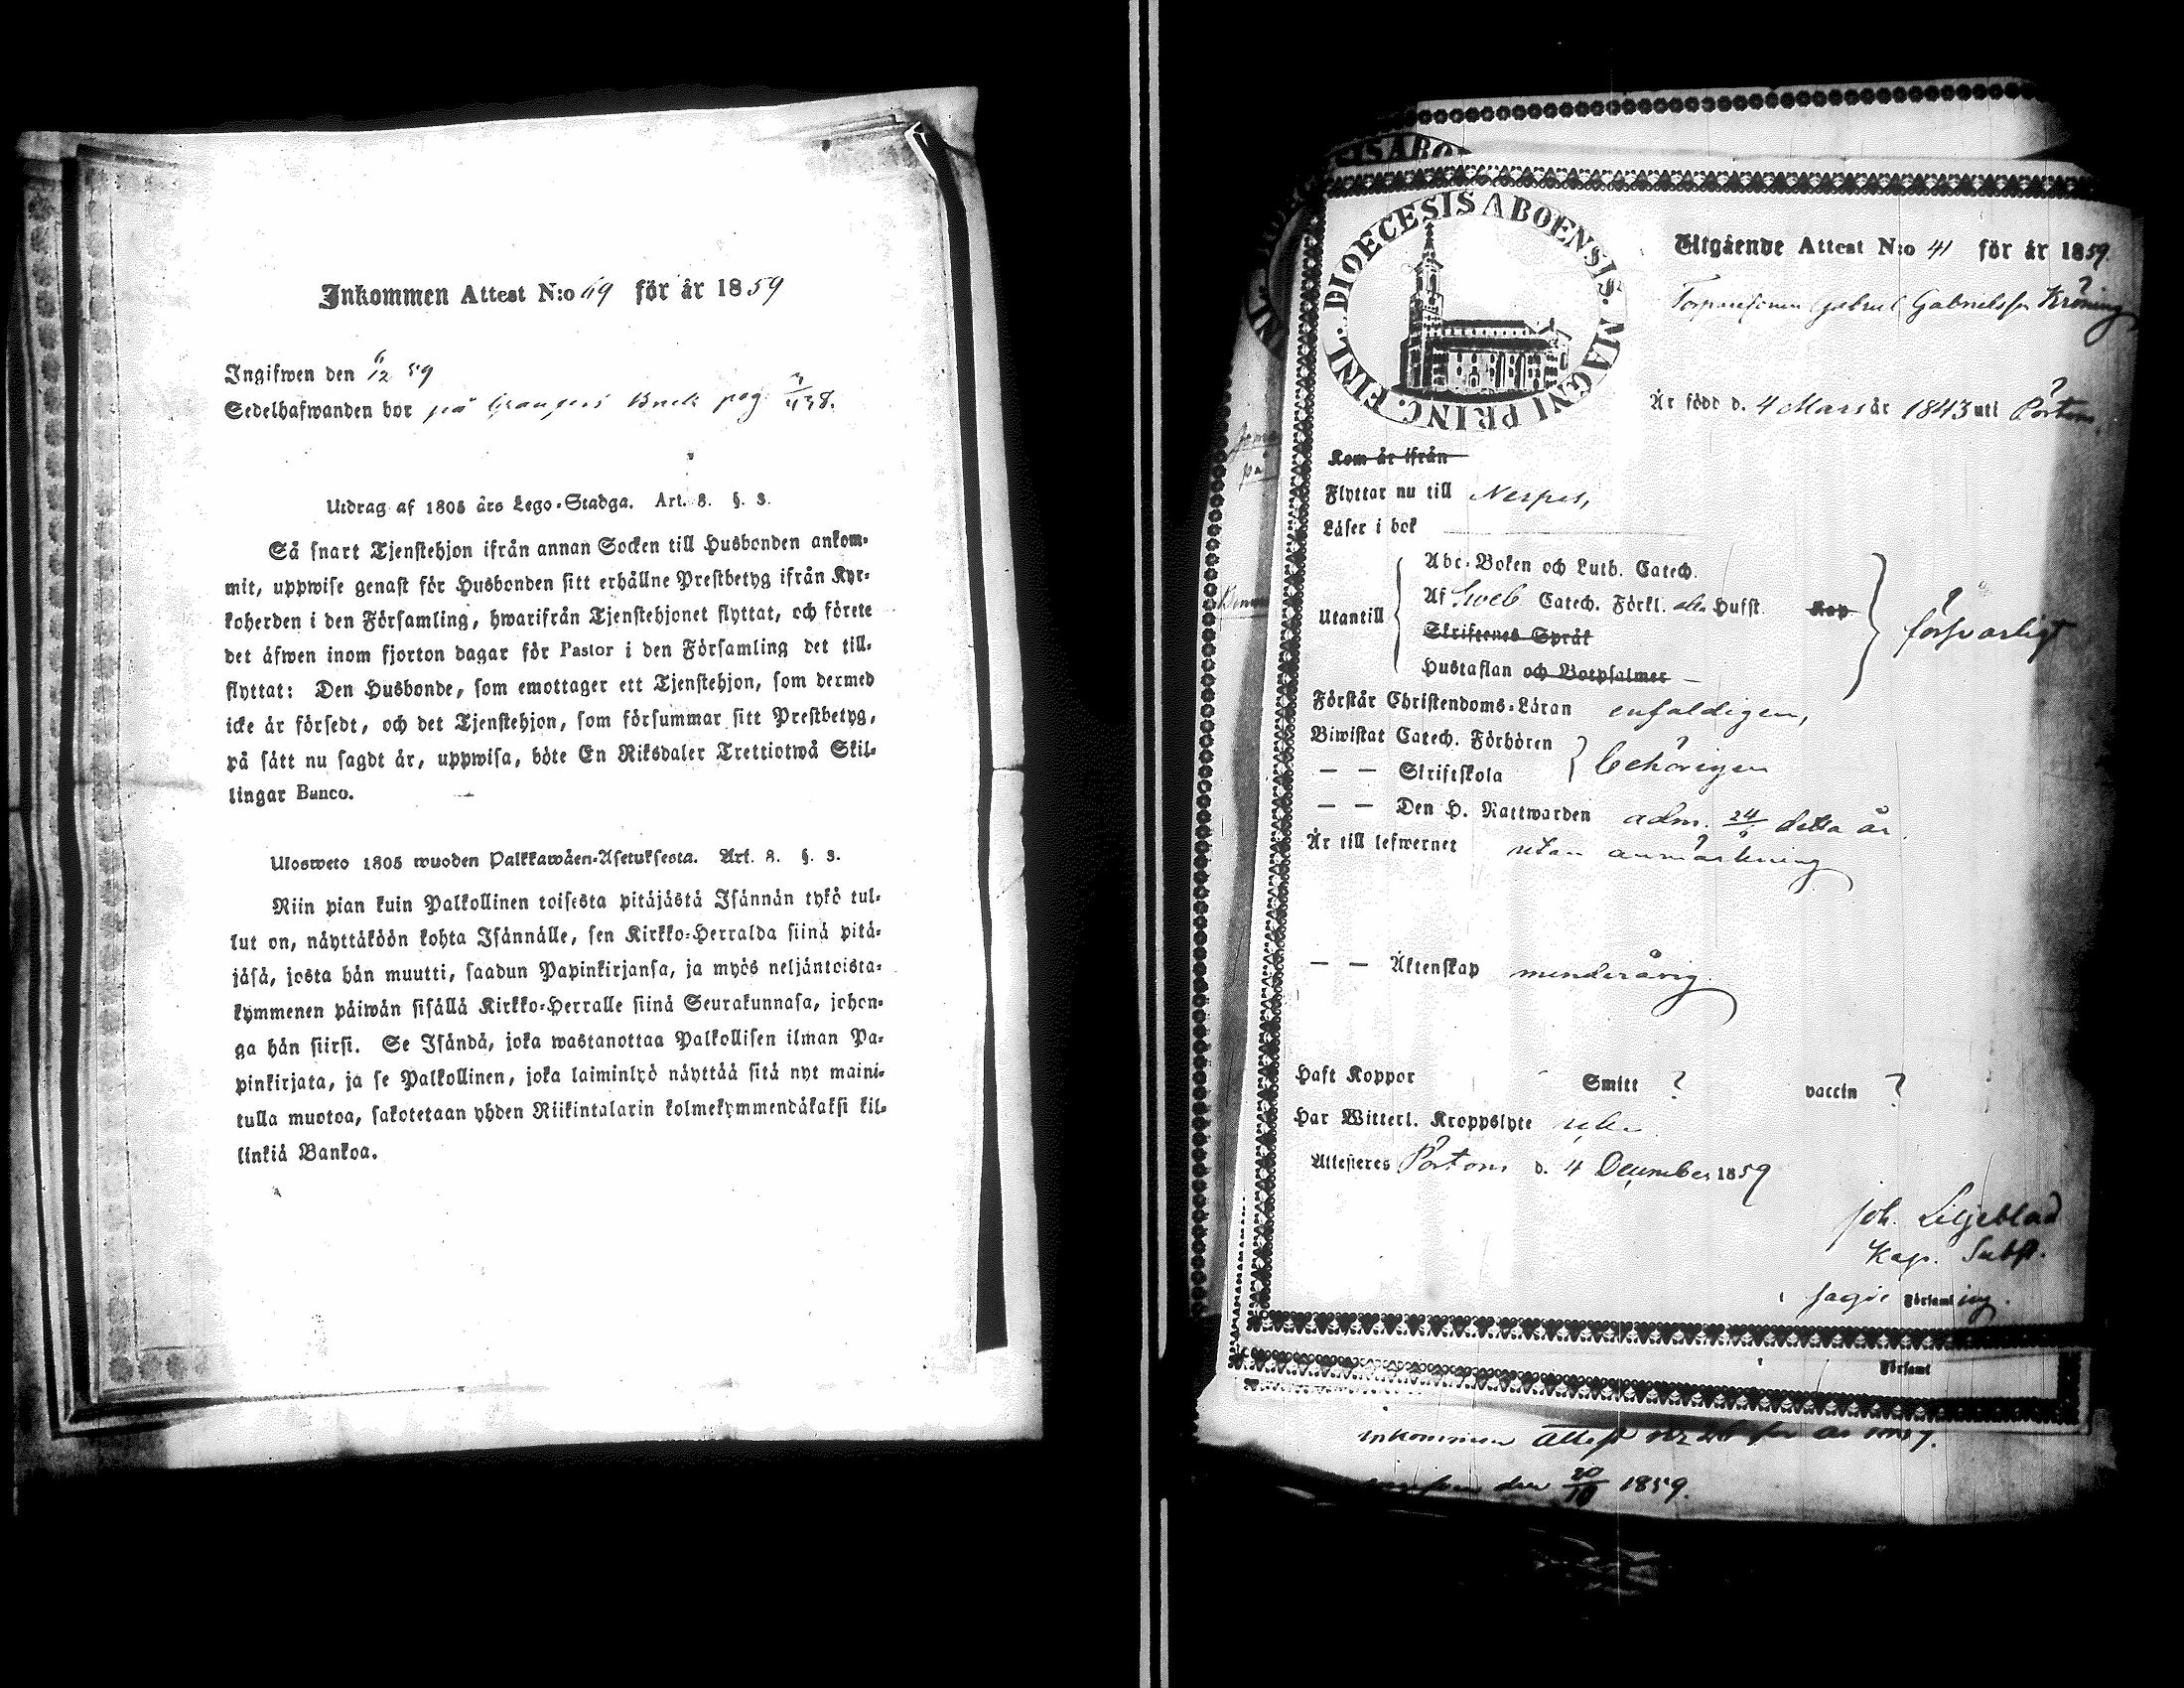 Inkommen Attest N:o 69 för år 1859
Ingifwen den 6/12 59
Sedelhafwanden bor på pag. 438.
Utdrag af 1805 års Lego-Stadga. Art. 8. §. 3.
Så snart Tjenstehjon ifrån annan Socken till Husbonden ankom-
mit, uppwise genast för Husbonden sitt erhållne Prestbetyg ifrån Kyr-
koherden i den Församling, hwarifrån Tjenstehjonet flyttat, och förete
det äfwen inom fjorton dagar för Pastor i den Församling det till-
flyttat: Den Husbonde, som emottager ett Tjenstehjon, som dermed
icke är försedt, och det Tjenstehjon, som försummar sitt Prestbetyg,
på sätt nu sagdt är, uppwisa, böte En Riksdaler Trettiotwå Skil-
lingar Banco.
Ulosweto 1805 wuoden Palkkawäen-Asetuksesta. Art. 8. §. 3.
Niin pian kuin Palkollinen toisesta pitäjästä Isännän tykö tul-
lut on, näyttäköön kohta Isännälle, sen Kirkko-Herralda siinä pitä-
jäsä, josta hän muutti, saadun Papinkirjansa, ja myös neljäntoista-
kymmenen päiwän sisällä Kirkko-Herralle siinä Seurakunnasa, johon-
ga hän siirsi. Se Isändä, joka wastanottaa Palkollisen ilman Pa-
pinkirjata, ja se Palkollinen, joka laiminlyö näyttää sitä nyt maini-
tulla muotoa, sakotetaan yhden Riikintalarin kolmekymmendäkaksi kil-
linkiä Bankoa.
FINL. DIOECESIS ABOENSIS. MAGNI PRINC.
Utgående Attest N:o 41 för år 1859.
Torparesonen Gabriel Gabrielsson Kröning
Är född d. 4 Mars år 1843 uti Pörtom
Kom år ifrån
Flyttar nu till Nerpes,
Läser i bok
Utantill
Abc-Boken och Luth. Catech.
Af Sveb Catech. Förkl. Kap
Skriftenes Språk
Hustaflan och Botpsalmer
försvarligt
Förstår Christendoms-Läran enfaldigen,
Biwistat Catech. Förhören
— — Skriftskola
behörigen
— — Den H. Nattwarden adm. detta år.
Är till lefwernet utan anmärkning
— — Äktenskap minderårig
Haft Koppor Smitt ? vaccin ?
Har Witterl. Kroppslyte
Attesteres Pörtom d. 4 December 1859
Joh. Liljeblad
Kap. Subst.
i Församling.
Församl
inkommen Attest
den 20/10 1859.